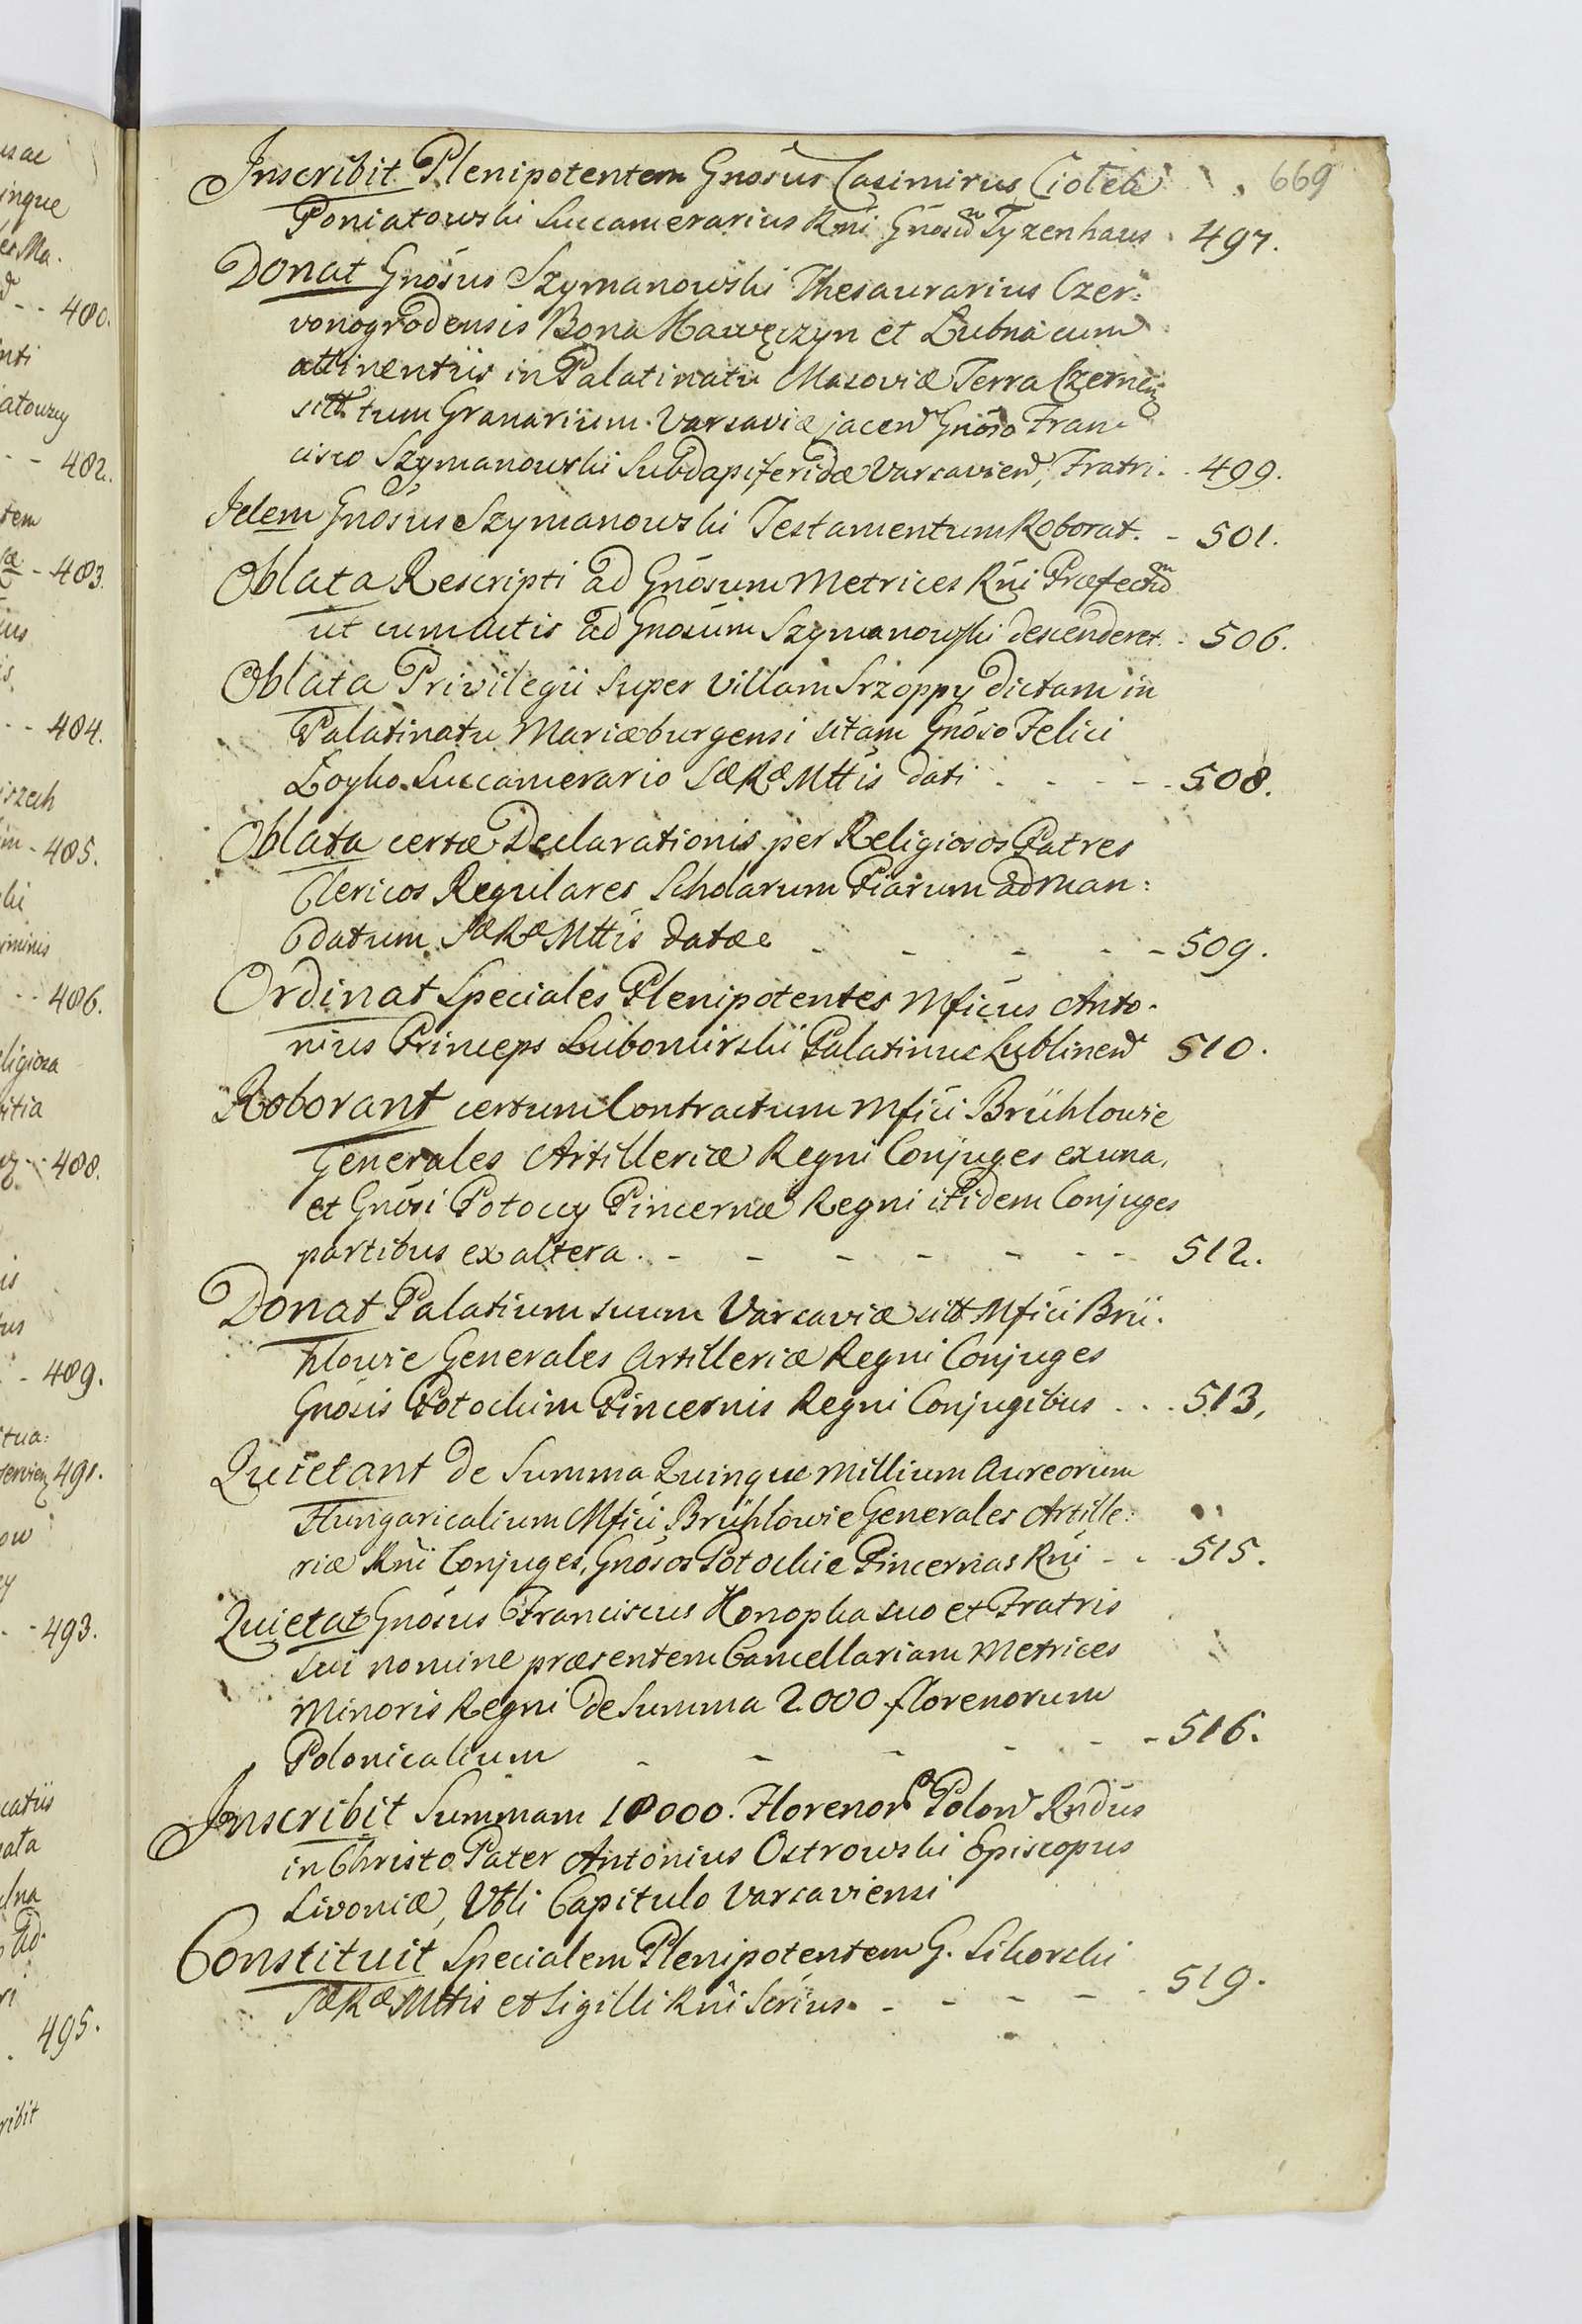 usae
inque
es Ma.
- - 480.
nti
atowzy
- - 482.
tem
- 483.
ius
is.
- - 484.
iszech
im - 485.
ki
iminis
- - 486.
ligiosa
itia
- - 488.
is
tus
- 489.
itua:
servien 491.
ow
ey
- - 493.
catiis
nata
lna
ri
. 495.
ribit
669
Inscribit Plenipotentem Gnosus Casimirus Ciołek
Poniatowski Succamerarius Rni Gnosum Tyzenhaus 497.
Donat Gnosus Szymanowski Thesaurarius Czer:
vonogrodensis Bona Nawęczyn et Łubna cum
attinentiis in Palatinatu Masoviæ Terra Czernen
sitt tum Granarium Varsaviæ jacen Gnoso Fran
cisco Szymanowski Subdapiferidæ Varsavien, Fratri. 499.
Idem Gnosus Szymanowski Testamentum Roborat. - 501.
Oblata Rescripti ad Gnosum Metrices Rni Præfectum
ut cum Actis ad Gnosum Szymanowski descenderet. 506.
Oblata Privilegii super Villam Srzoppy dictam in
Palatinatu Mariæburgensi sitam Gnoso Felici
Łoyko Succamerario Sæ Ræ Mttis dati - - - 508.
Oblata certæ Declarationis per Religiosos Patres
Clericos Regulares Scholarum Piarum ad man:
datum Sæ Ræ Mttis datæ - - - - - 509.
Ordinat Speciales Plenipotentes Mficus Anto-
nius Princeps Lubomirski Palatinus Lublinen 510.
Roborant certum Contractum Mfici Brühlowie
Generales Artilleriæ Regni Conjuges ex una,
et Gnosi Potoccy Pincernæ Regni itidem Conjuges
partibus ex altera. - - - - - - - 512.
Donat Palatium suum Varsaviæ sitt Mfici Brü-
hlowie Generales Artilleriæ Regni Conjuges
Gnosis Potockim Pincernis Regni Conjugibus . . . 513.
Quietant de Summa Quinque Millium Aureorum
Hungaricalium Mfici Brühlowie Generales Artille:
riæ Rni Conjuges, Gnosos Potockie Pincernas Rni - - 515.
Quietat Gnosus Franciscus Konopka suo et Fratris
sui nomine præsentem Cancellariam Metrices
Minoris Regni de Summa 2000 florenorum
Polonicalium - - - - - - 516.
Inscribit Summam 18000. Florenor Polon Rndus
in Christo Pater Antonius Ostrowski Episcopus
Livoniæ, Vbli Capitulo Varsaviensi
Constituit Specialem Plenipotentem G. Sikorski
Sæ Ræ Mttis et Sigilli Rni Scrius. - - - - - 519.